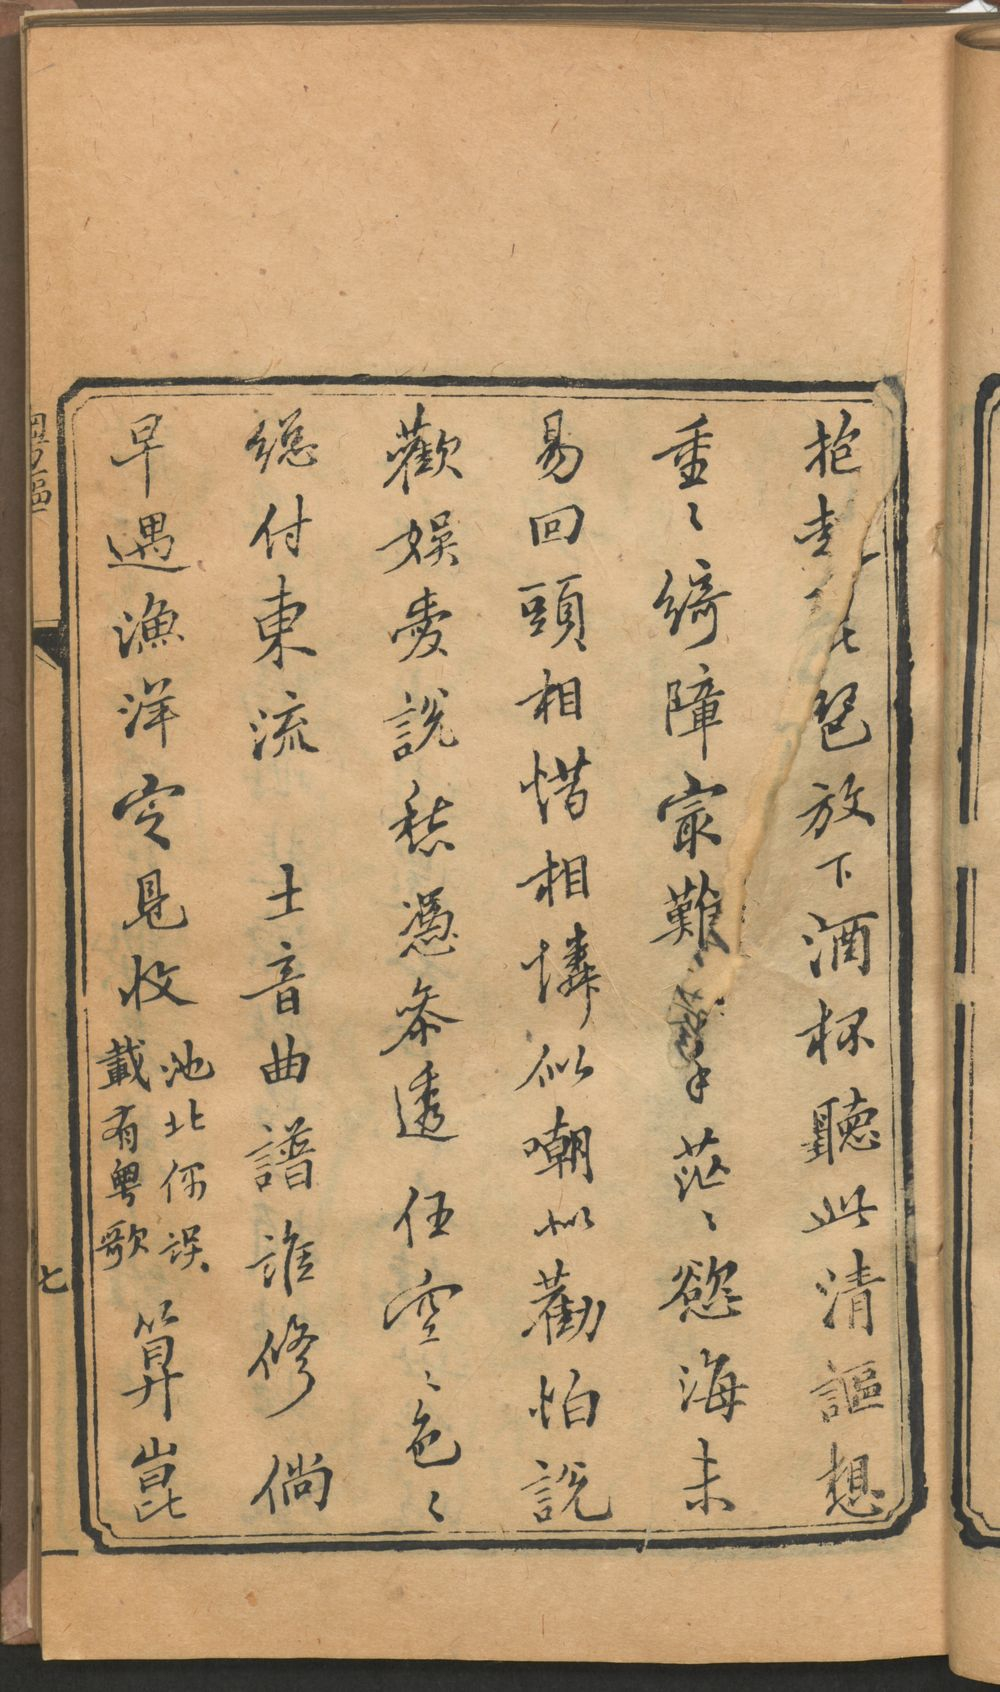 抱起琵琶放下酒杯聽此清謳想
重〻綺障最難手茫〻慾海未
易回頭相惜相憐似嘲似勸怕說
歡娛愛說愁憑參透任空〻色〻
總付東流　士音曲譜誰修倘
早遇漁洋定見收池北偶談載有粵歌算崑
粵謳
七